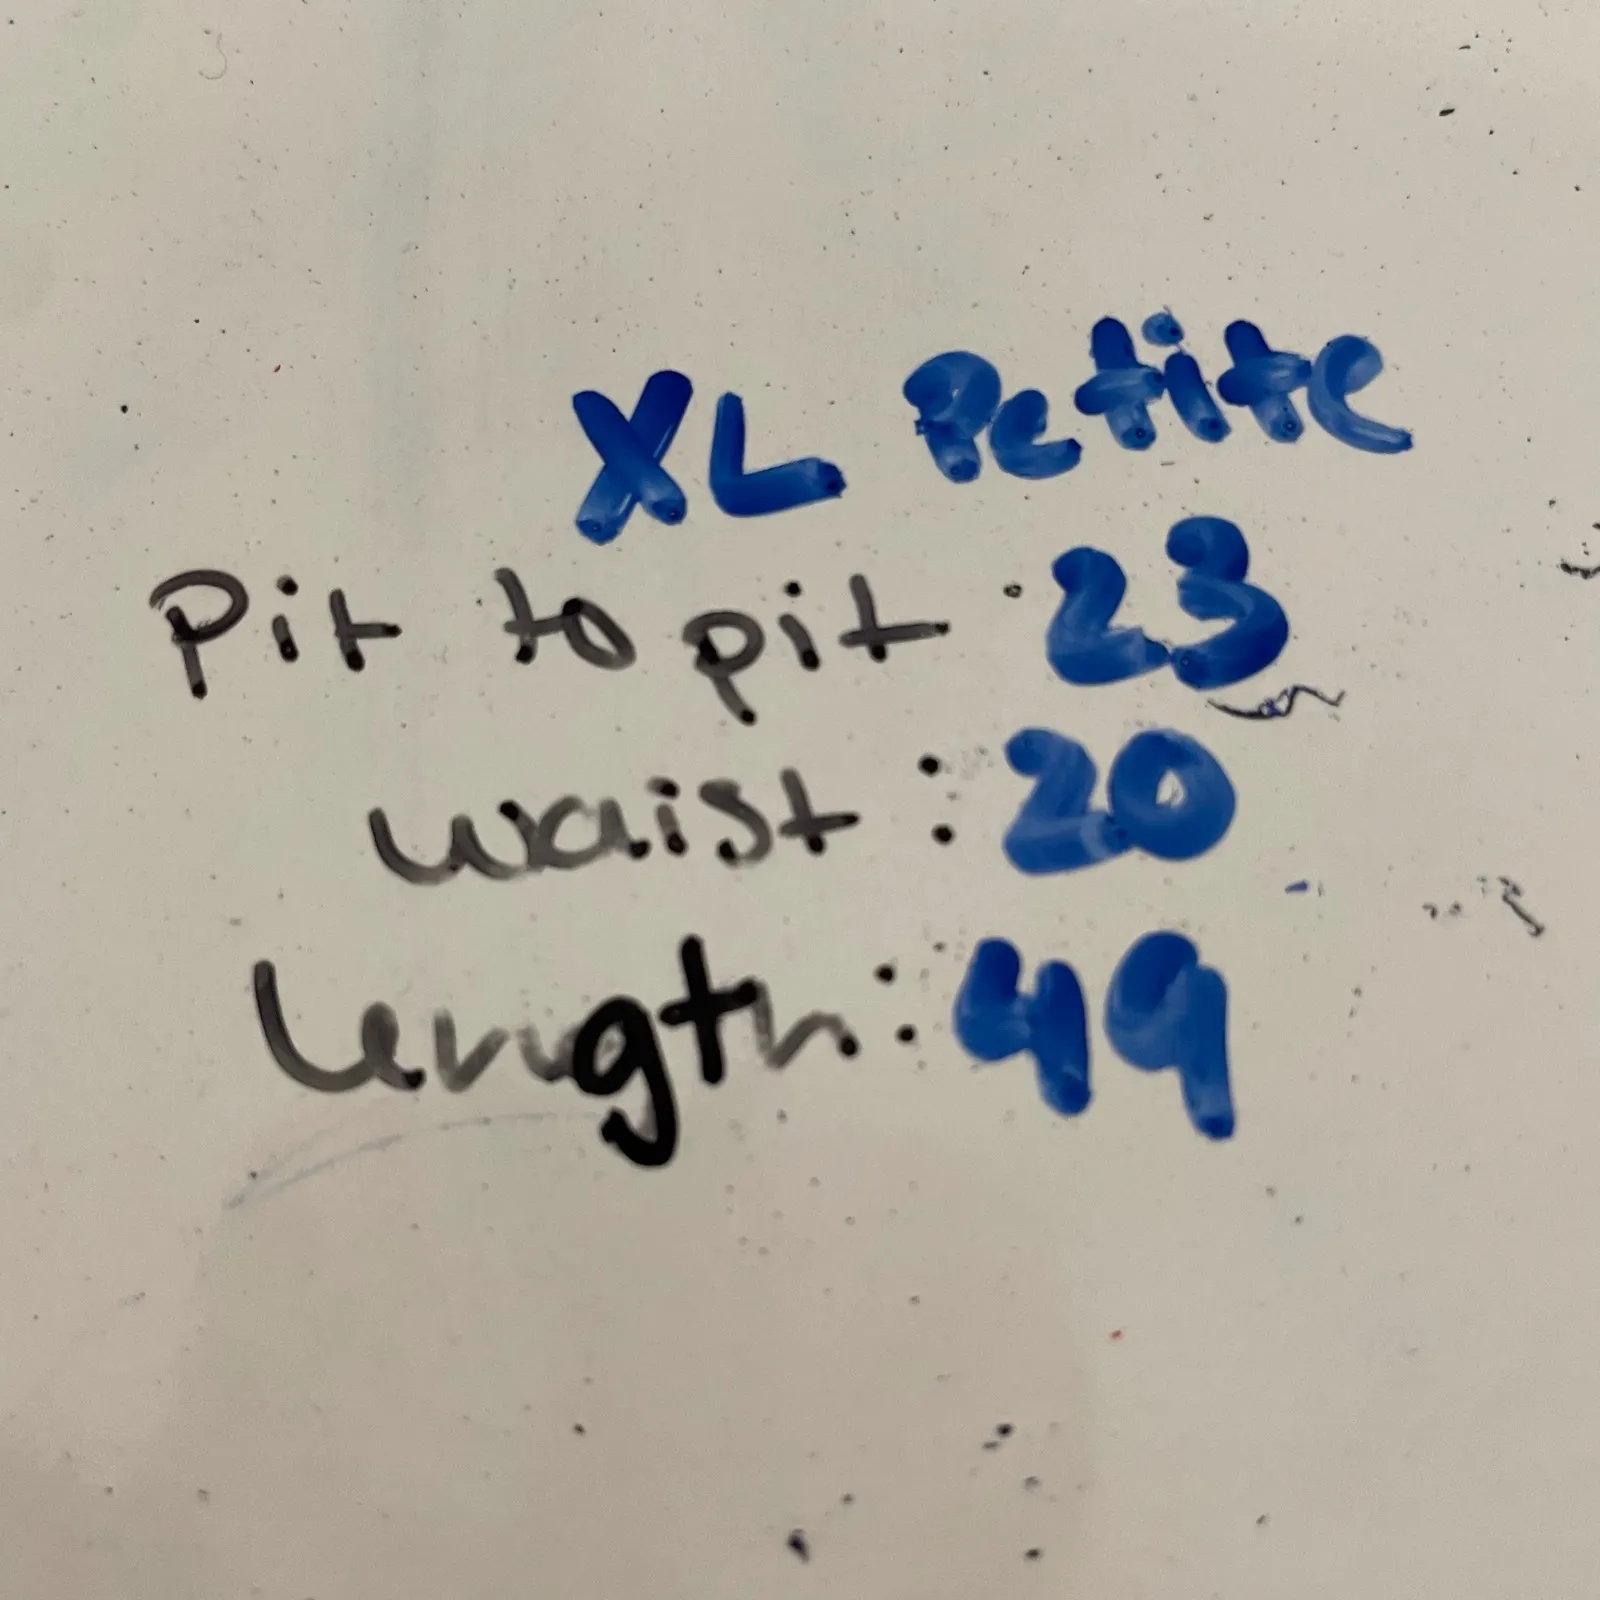 XL Petite
Pit to pit : 23
waist : 20
length : 49